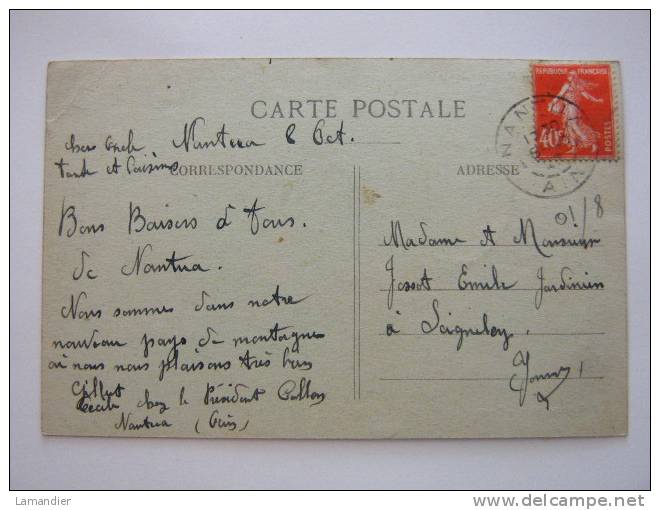 CARTE POSTALE
CORRESPONDANCE
ADRESSE
REPUBLIQUE FRANÇAISE
40c
POSTES
NANTUA
AIN
01/8
Nantua 8 Oct.
Chers Oncle
tante et Cousins
Bons Baisers à tous.
de Nantua.
Nous sommes dans notre
nouveau pays de montagnes
où nous nous plaisons très bien
Gillet
Cécile chez le Président
Nantua (Ain)
Madame et Monsieur
Jossot Emile Jardinier
à Seignelay
Yonne
Lamandier
delcampe.net